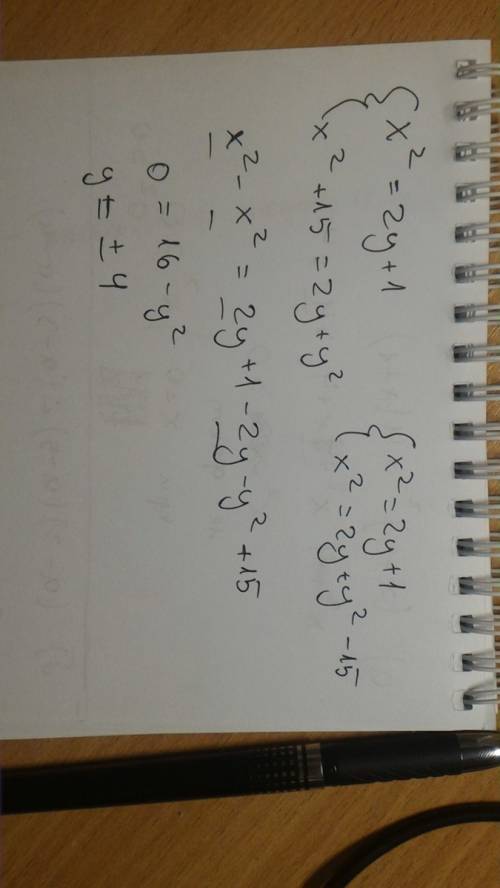 { x² = 2y + 1
x² + 15 = 2y + y²
{ x² = 2y + 1
x² = 2y + y² - 15
x² - x² = 2y + 1 - 2y - y² + 15
0 = 16 - y²
y = ± 4